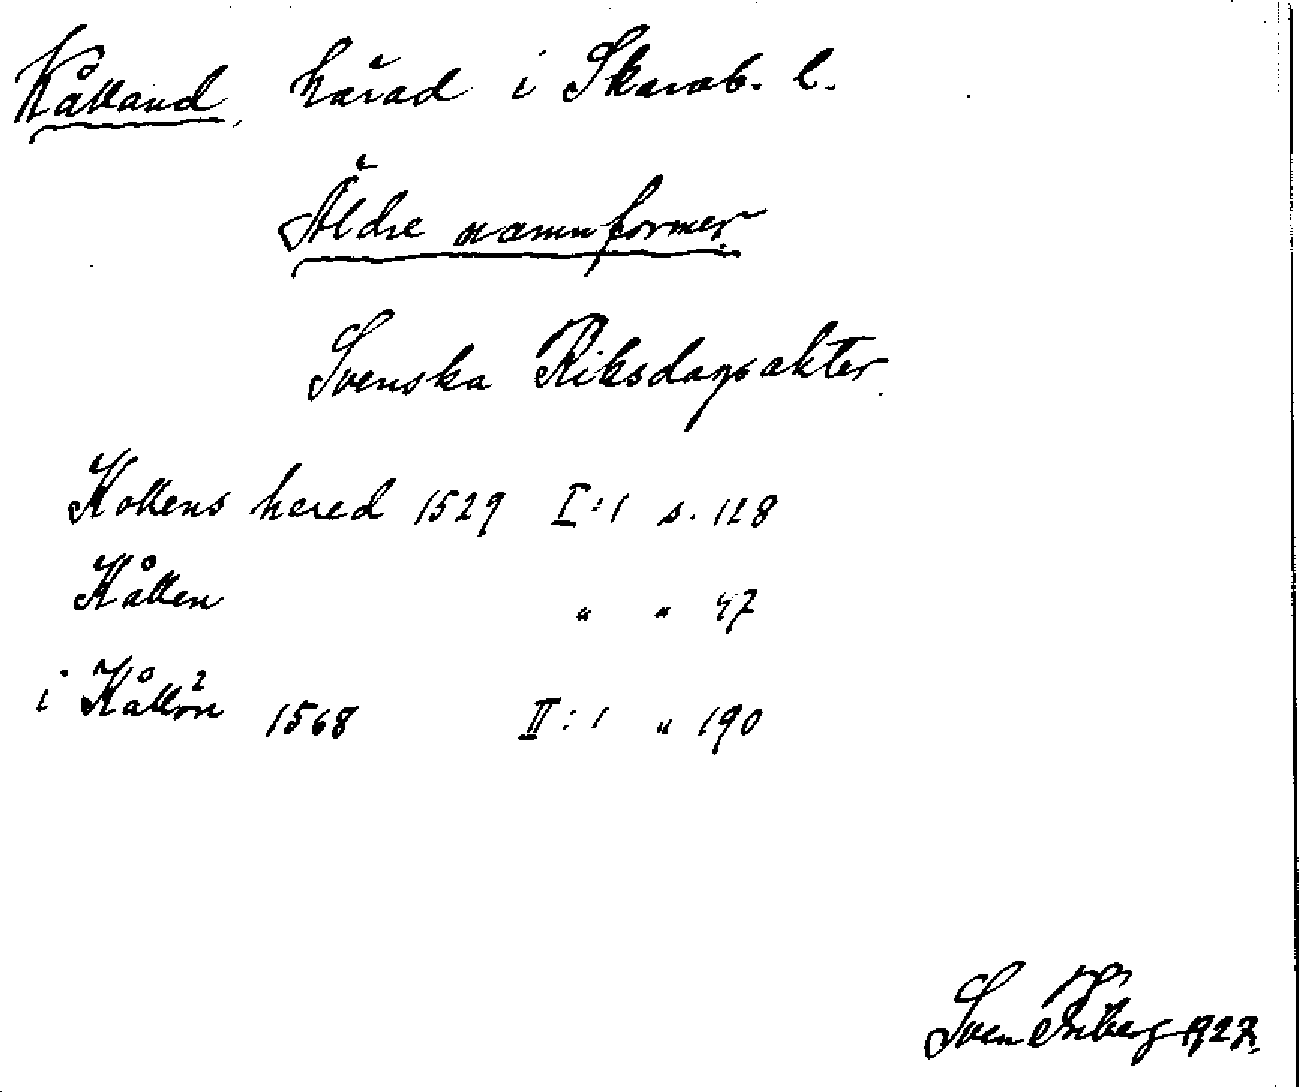 Kålland, härad i Skarab. l.
Äldre namnformer
Svenska Riksdagsakter
Kollens hered 1529 I:1 s. 128
Kållen " " 47
i Kållön 1568 II:1 " 190
Sven Friberg 1927.